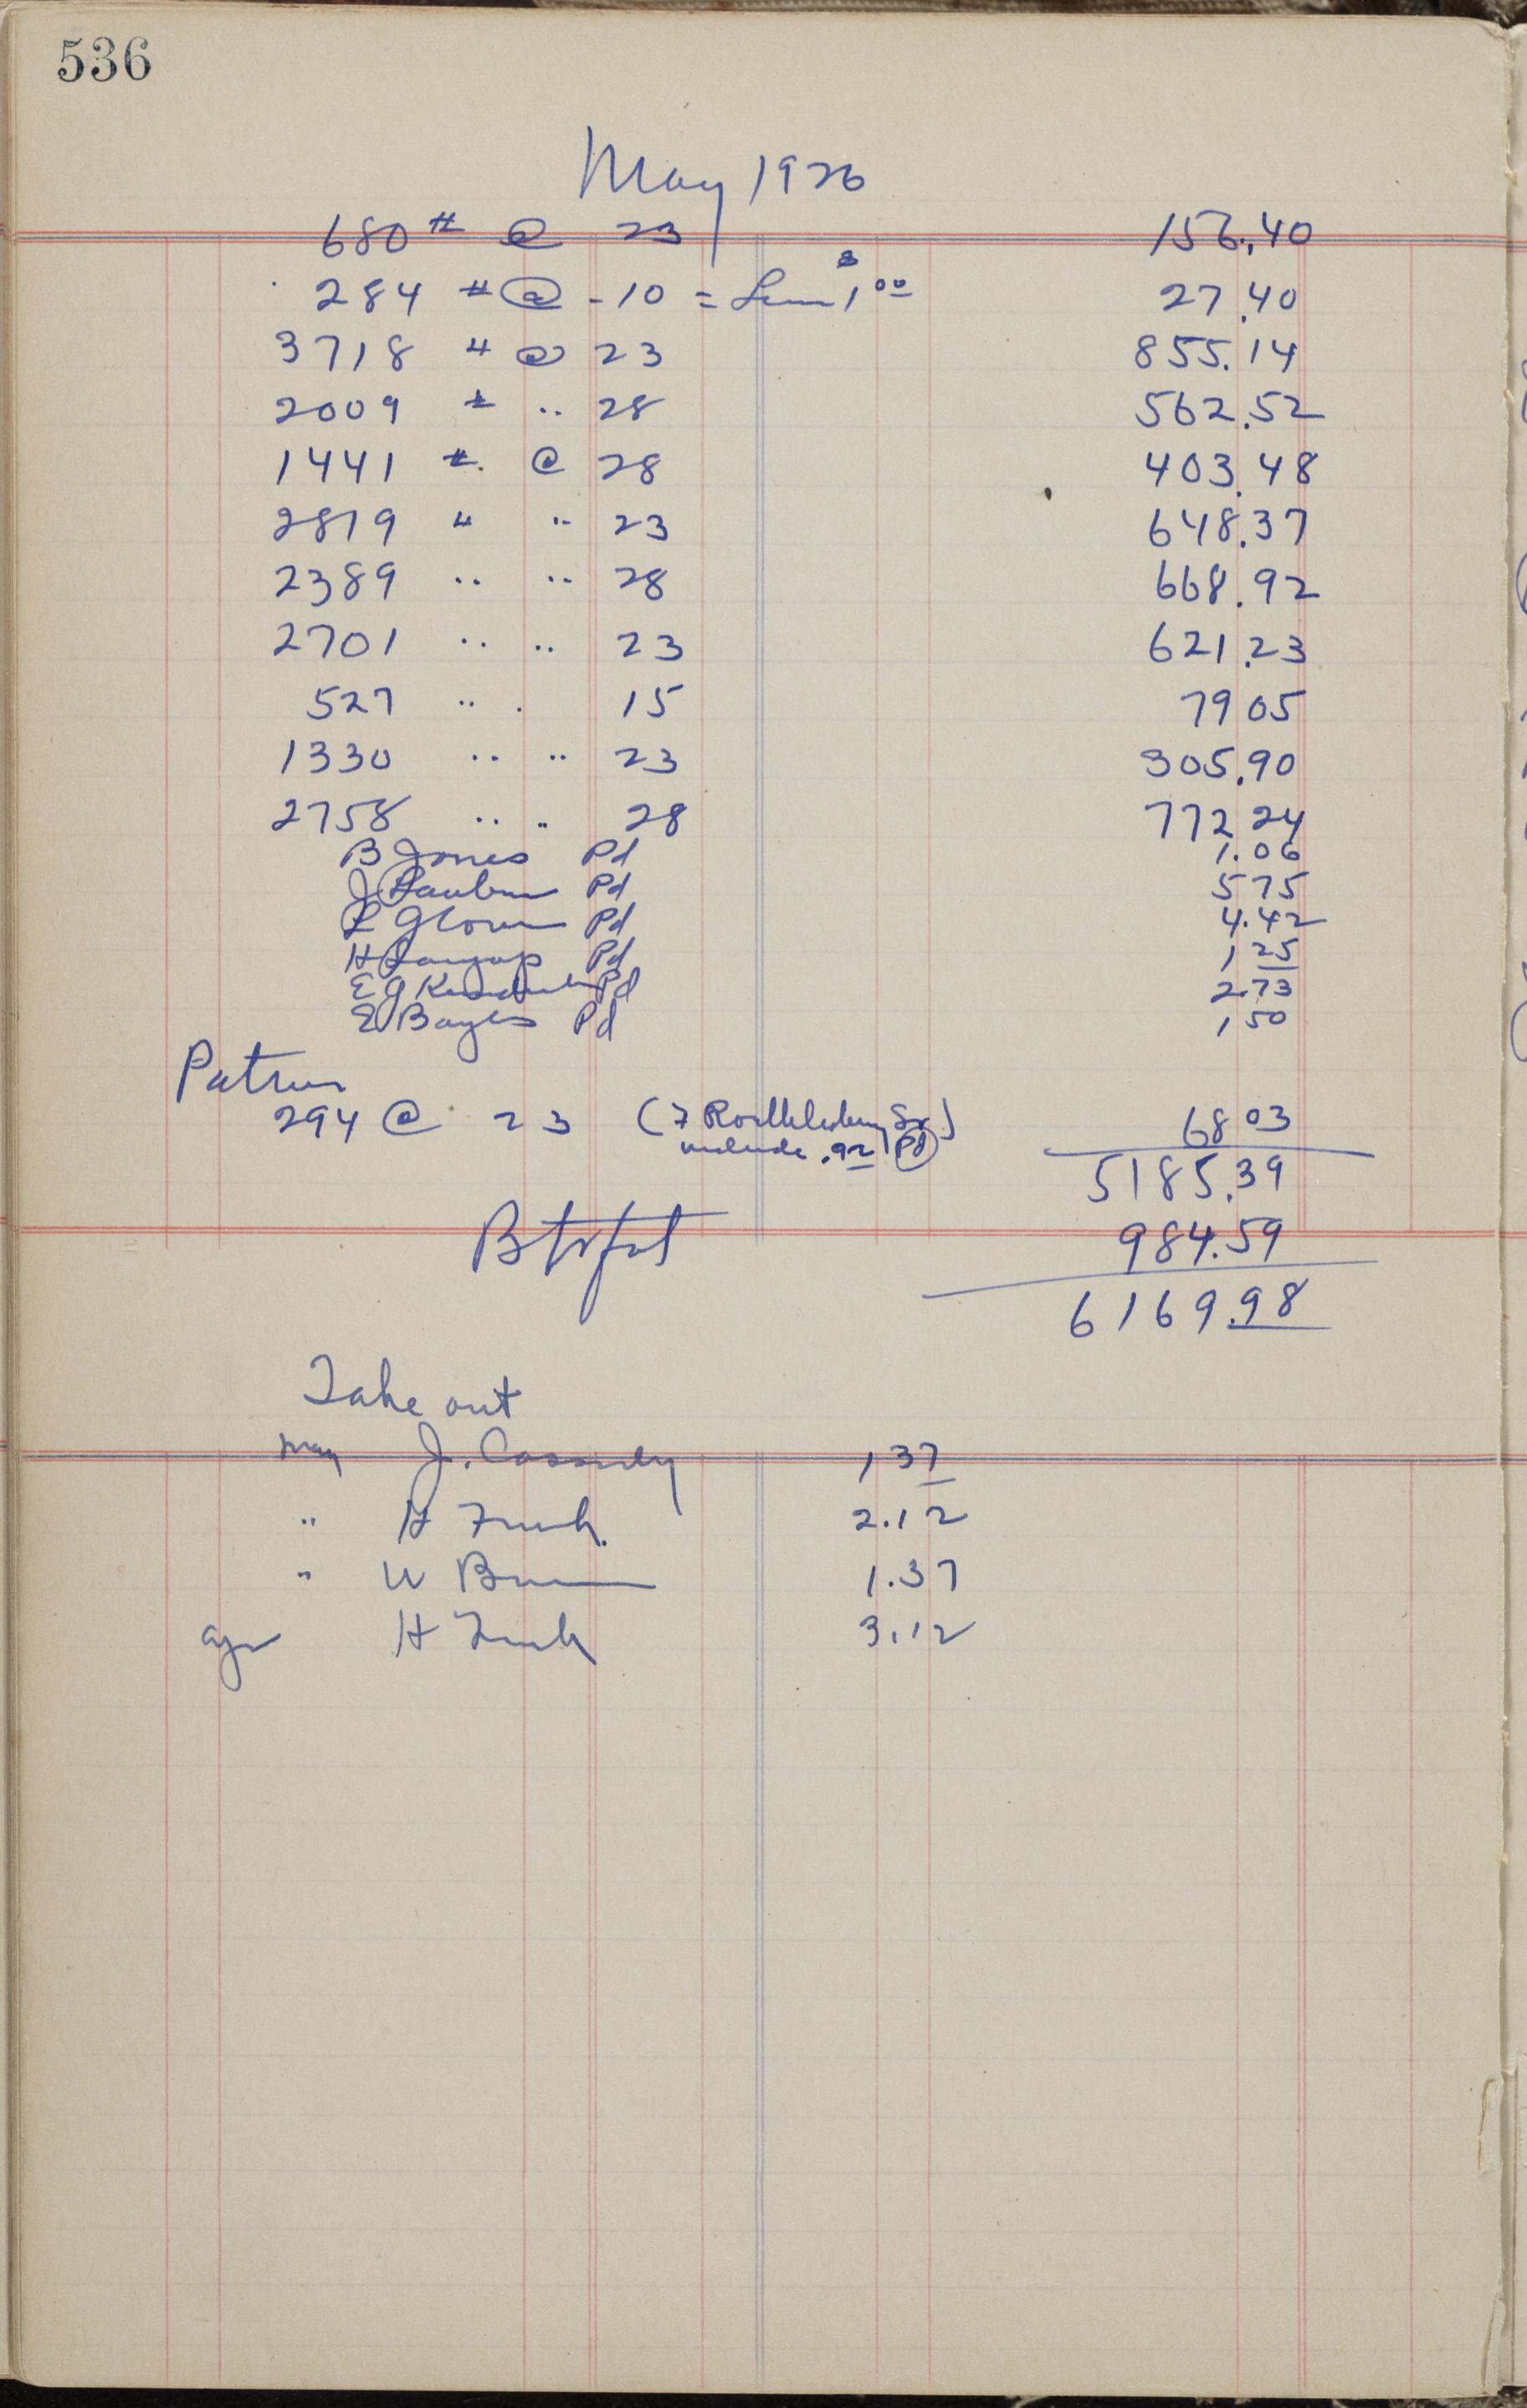 536
May 1926
680 # @ 23 156.40
284 # @ -10 = Less 1 00 27.40
3718 " @ 23 855.14
2009 # .. 28 562.52
1441 #. @ 28 403.48
2819 " .. 23 648.37
2389 .. .. 28 668.92
2701 .. .. 23 621.23
527 .. . 15 79 05
1330 .. .. 23 305.90
2758 .. .. 28 772 24
B Jones Pd 1.06
J Pd 5 75
Pd 4.42
H Pd 1 25
E G Pd 2.73
E Bayles Pd 1 50
Patron
294 @ 23 ( Sr.) 68 03
include .92 Pd
5185.39
984.59
6169.98
Take out
May J. Cassidy 1 37
.. H 2.12
.. W 1.37
H 3.12